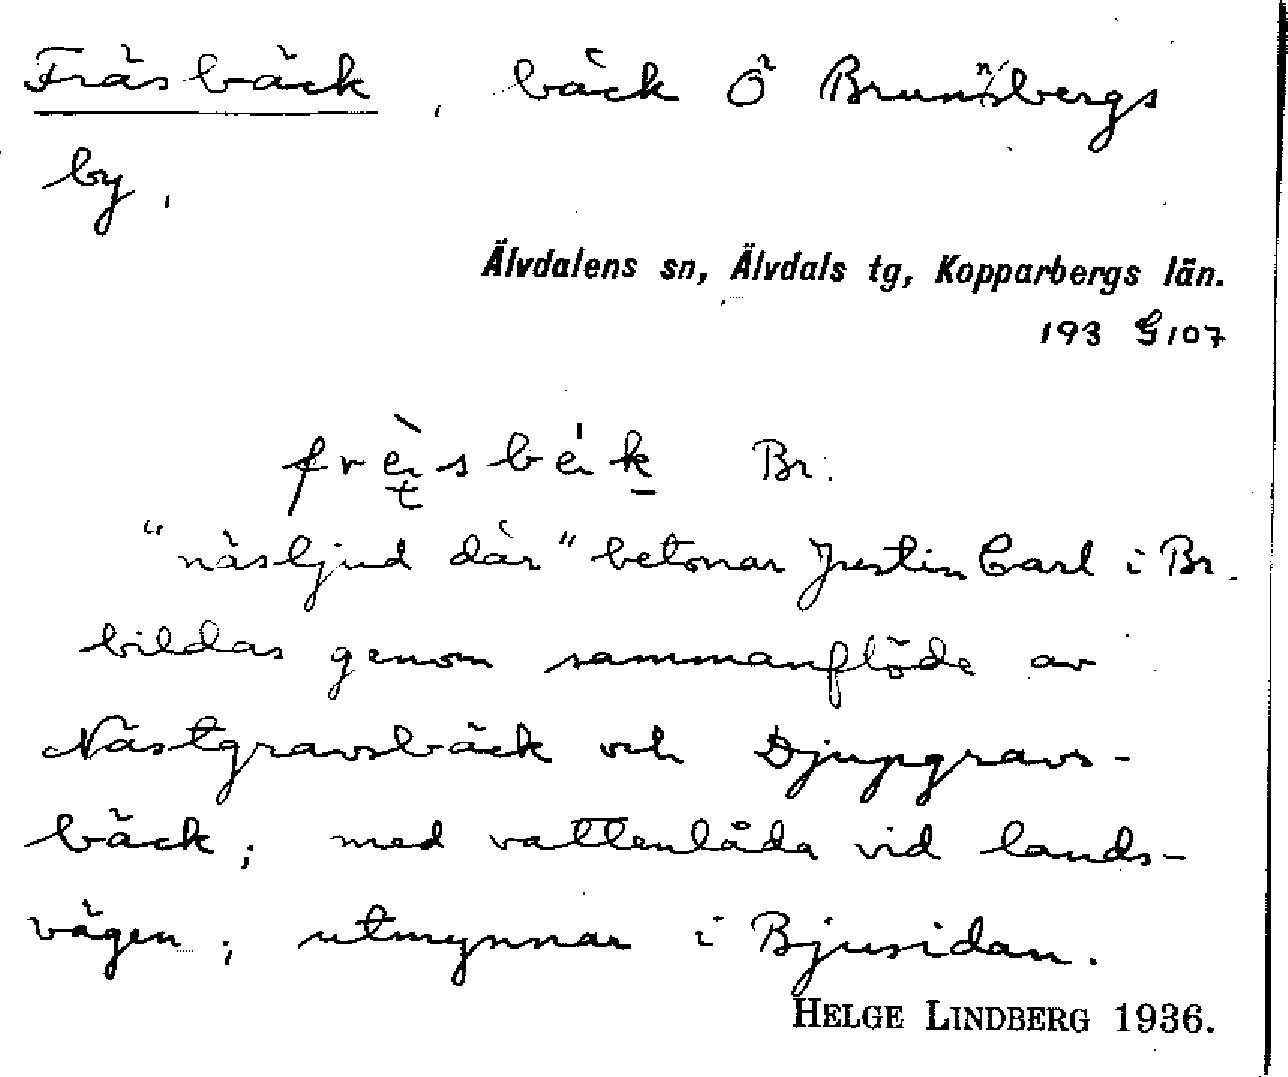 Fräsbäck, bäck Ö Brunnsbergs
by.
Älvdalens sn, Älvdals tg, Kopparbergs län.
193 G107
Br.
"näsljud där" betonar Justin Carl i Br.
bildas genom sammanflöde av
Nästgravsbäck och Djupgravs-
bäck; med vattenlåda vid lands-
vägen; utmynnar i Bjusidan.
HELGE LINDBERG 1936.